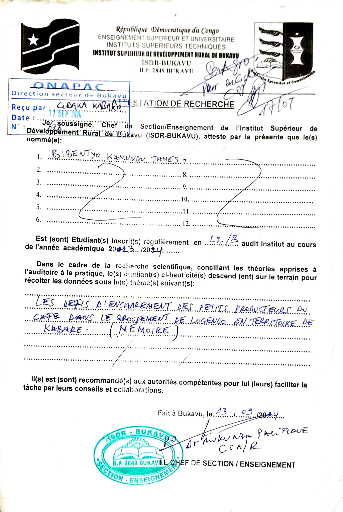 République Démocratique du Congo
ENSEIGNEMENT SUPERIEUR ET UNIVERSITAIRE
INSTITUTS SUPERIEURS TECHNIQUES
INSTITUT SUPERIEUR DE DEVELOPPEMENT RURAL DE BUKAVU
ISDR-BUKAVU
B.P. 2849 BUKAVU
ONAPAC
Direction secteur de Bukavu
Reçu par
Date :
N°
STATION DE RECHERCHE
17/07
Je soussigné, Chef de Section/Enseignement de l'Institut Supérieur de
Développement Rural de Bukavu (ISDR-BUKAVU), atteste par la présente que le(s)
nommé(e):
1. JAMES 7.
2. 8.
3. 9.
4. 10.
5. 11.
6. 12.
Est (sont) Etudiant(s) inscrit(s) régulièrement en audit Institut au cours
de l'année académique 2023 /2024
Dans le cadre de la recherche scientifique, conciliant les théories apprises à
l'auditoire à la pratique, le(s) étudiant(s) descend (ent) sur le terrain pour
récolter les données sous le(s) thème(s) suivant(s):
LES DEFIS D'ENCADREMENT DES PETITS PRODUCTEURS DU
CAFE DANS LE GROUPEMENT DE EN TERRITOIRE DE
KABARE. (MEMOIRE)
Il(s) est (sont) recommandé(s) aux autorités compétentes pour lui (leurs) faciliter la
tâche par leurs conseils et collaborations.
Fait à Bukavu, le 13 09 2024
ISDR - BUKAVU
B.P. 2849 BUKAVU
SECTION - ENSEIGNEMENT
LE CHEF DE SECTION / ENSEIGNEMENT